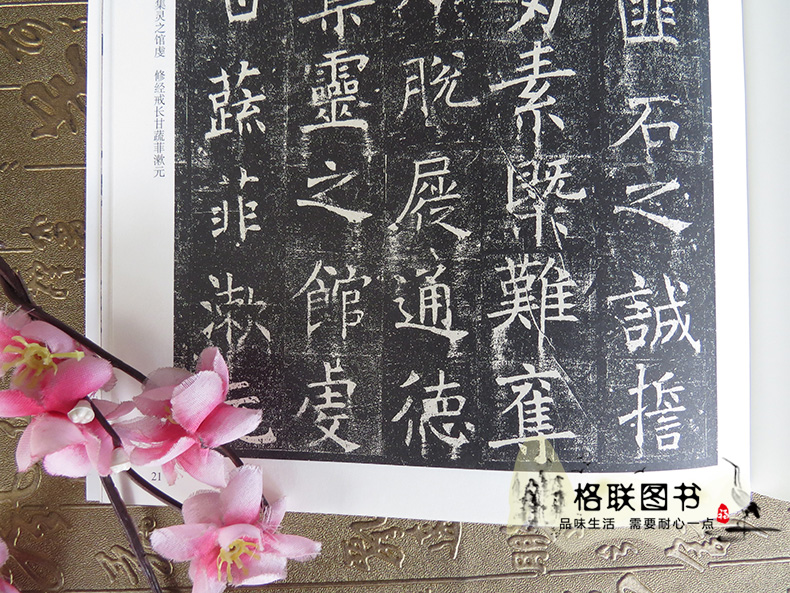 匪石之誠
素槩難奪
脫屣通德
集靈之館虔
甘蔬菲漱元
集灵之馆虔 修经戒长甘蔬菲漱元
21
格联图书
品味生活 需要耐心一点